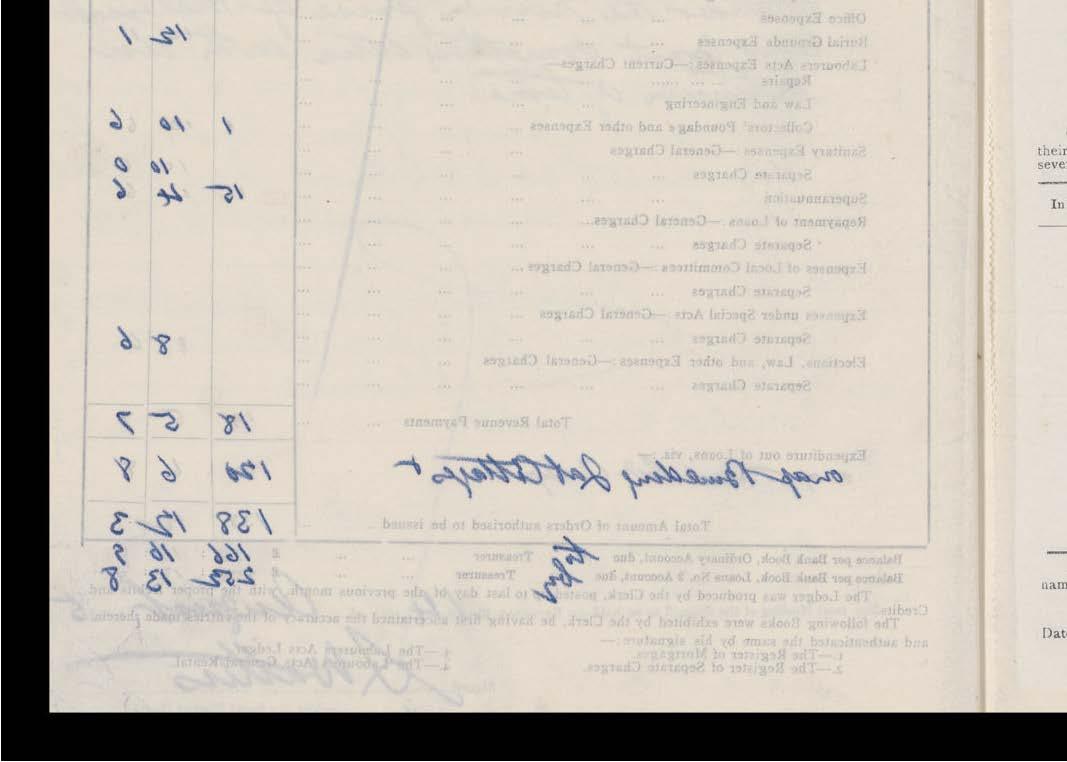 Office Expenses
Burial Grounds Expenses 12 1
Labourers Acts Expenses:—Current Charges—
Repairs
Law and Engineering
Collectors' Poundage and other Expenses ... 1 10 6
Sanitary Expenses:—General Charges
Separate Charges 10 0
Superannuation 15 4 6
Repayment of Loans:—General Charges...
Separate Charges
Expenses of Local Committees:—General Charges ...
Separate Charges
Expenses under Special Acts—General Charges
Separate Charges 8 6
Elections, Law, and other Expenses:—General Charges
Separate Charges
Total Revenue Payments 18 5 7
Expenditure out of Loans, viz.:— 120 6 8
Building Lab Cottages
Total Amount of Orders authorised to be issued 138 12 3
Balance per Bank Book, Ordinary Account, due Treasurer £ 166 16
Balance per Bank Book, Loans No. 2 Account, due Treasurer £ 13 8
The Ledger was produced by the Clerk, posted up to last day of the previous month, with the proper Debits and
Credits.
The following Books were exhibited by the Clerk, he having first ascertained the accuracy of the entries made therein
and authenticated the same by his signature:—
1.—The Register of Mortgages. 3.—The Labourers Acts Ledger.
2.—The Register of Separate Charges. 4.—The Labourers Acts General Rental.
their
seve
In
nam
Date